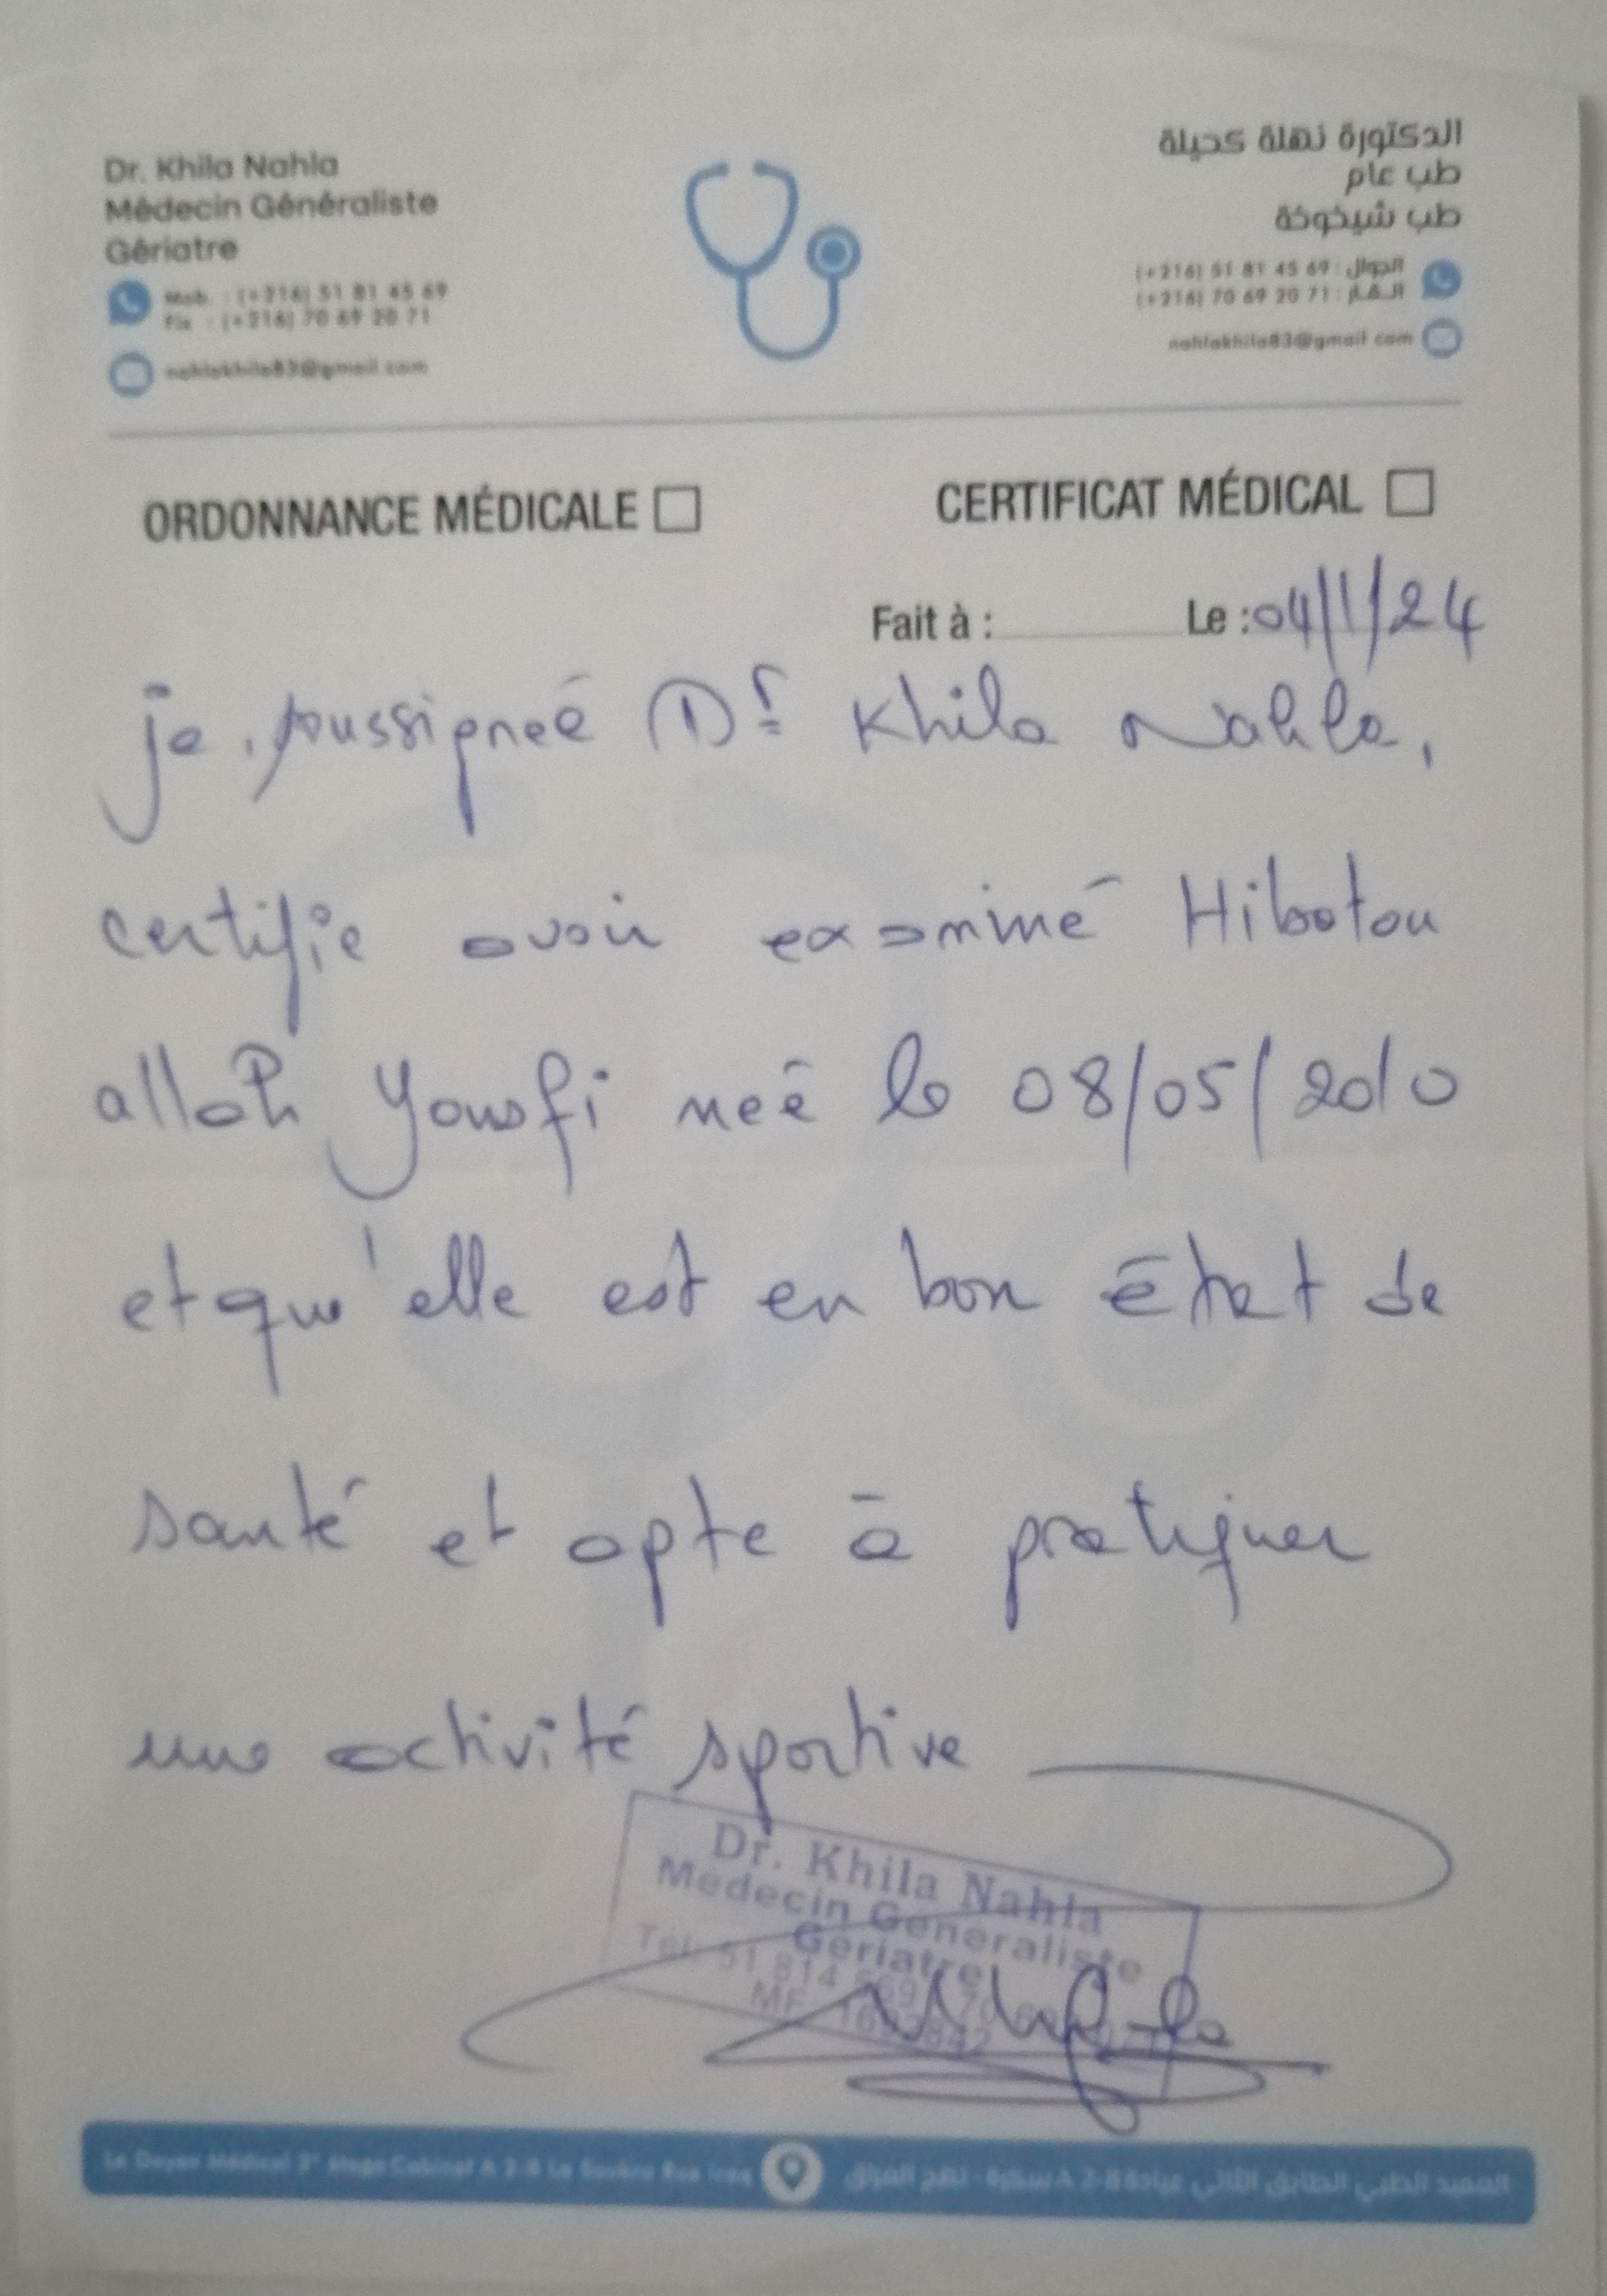 Dr. Khila Nahla
Médecin Généraliste
Gériatre
Mob. : (+216) 51 81 45 69
Fix : (+216) 70 69 20 71
nahlakhila83@gmail.com
الدكتورة نهلة كحيلة
طب عام
طب شيخوخة
الجوال : 69 45 81 51 (216+)
القار : 71 20 69 70 (216+)
nahlakhila83@gmail.com
ORDONNANCE MÉDICALE
CERTIFICAT MÉDICAL
Fait à : Le : 04/1/24
je, soussigneé Dr Khila Nahla,
certifie avoir examiné Hibatou
allah Yousfi neé le 08/05/2010
et qu'elle est en bon état de
santé et apte à pratiquer
une activité sportive
Dr. Khila Nahla
Médecin Généraliste
Gériatre
Tél: 51 814 569
MF
Le Doyen Médical 2° étage Cabinet A 2-8 La Soukra Rue Iraq
العميد الطبي الطابق الثاني عيادة A 2-8 سكرة - نهج العراق